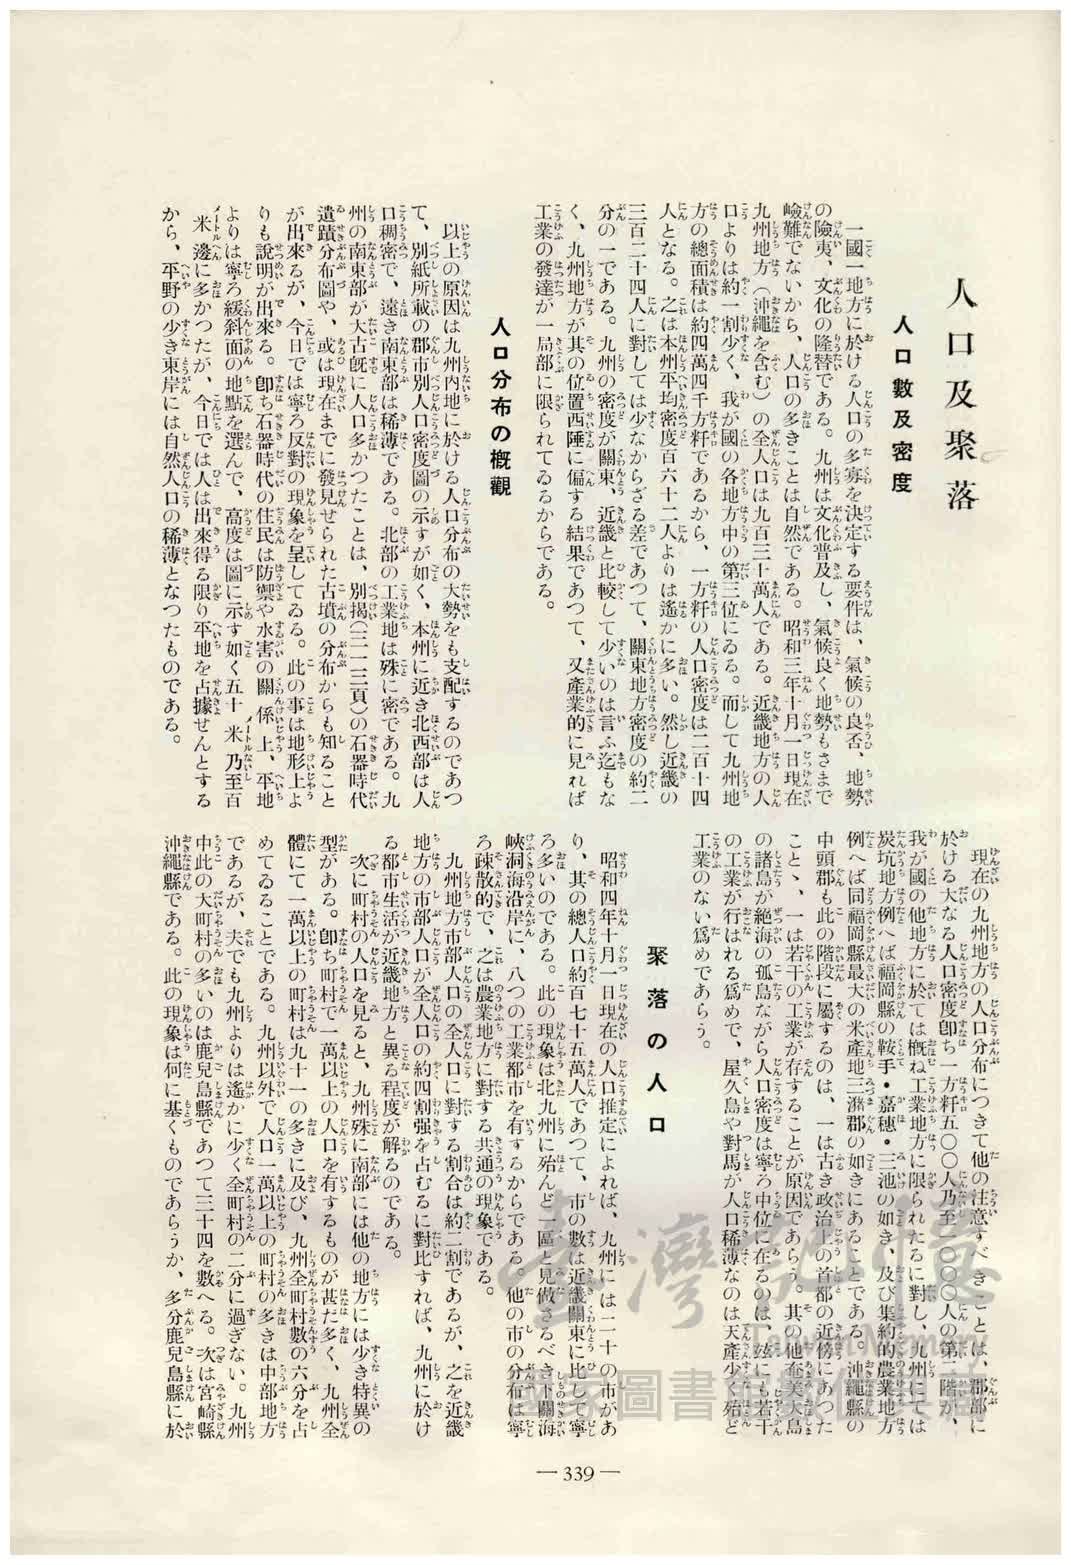 人口及聚落
人口數及密度
一國一地方に於ける人口の多寡を決定する要件は、氣候の良否、地勢
の險夷、文化の隆替である。九州は文化普及し、氣候良く地勢もさまで
嶮難でないから、人口の多きことは自然である。昭和三年十月一日現在
九州地方（沖繩を含む）の全人口は九百三十萬人である。近畿地方の人
口よりは約一割少く、我が國の各地方中の第三位にゐる。而して九州地
方の總面積は約四萬四千方粁であるから、一方粁の人口密度は二百十四
人となる。之は本州平均密度百六十二人よりは遙かに多い。然し近畿の
三百二十四人に對しては少なからざる差であつて、關東地方密度の約二
分の一である。九州の密度が關東、近畿と比較して少いのは言ふ迄もな
く、九州地方が其の位置西陲に偏する結果であつて、又產業的に見れば
工業の發達が一局部に限られてゐるからである。
人口分布の概觀
以上の原因は九州內地に於ける人口分布の大勢をも支配するのであつ
て、別紙所載の郡市別人口密度圖の示すが如く、本州に近き北西部は人
口稠密で、遠き南東部は稀薄である。北部の工業地は殊に密である。九
州の南東部が大古旣に人口多かつたことは、別揭（三一三頁）の石器時代
遺蹟分布圖や、或は現在までに發見せられた古墳の分布からも知ること
が出來るが、今日では寧ろ反對の現象を呈してゐる。此の事は地形上よ
りも說明が出來る。卽ち石器時代の住民は防禦や水害の關係上、平地
よりは寧ろ緩斜面の地點を選んで、高度は圖に示す如く五十米乃至百
米邊に多かつたが、今日では人は出來得る限り平地を占據せんとする
から、平野の少き東岸には自然人口の稀薄となつたものである。
現在の九州地方の人口分布につきて他の注意すべきことは、郡部に
於ける大なる人口密度卽ち一方粁五〇〇人乃至一〇〇〇人の第二階が、
我が國の他地方に於ては概ね工業地方に限られたるに對し、九州にては
炭坑地方例へば福岡縣の鞍手・嘉穗・三池の如き、及び集約的農業地方
例へば同福岡縣最大の米產地三潴郡の如きにあることである。沖繩縣の
中頭郡も此の階段に屬するのは、一は古き政治上の首都の近傍にあつた
こと、一は若干の工業が存することが原因であらう。其の他奄美大島
の諸島が絕海の孤島ながら人口密度は寧ろ中位に在るのは、玆にも若干
の工業が行はれる爲めで、屋久島や對馬が人口稀薄なのは天產少く殆ど
工業のない爲めであらう。
聚落の人口
昭和四年十月一日現在の人口推定によれば、九州には二十の市があ
り、其の總人口約百七十五萬人であつて、市の數は近畿關東に比して寧
ろ多いのである。此の現象は北九州に殆んど一區と見做さるべき下關海
峽洞海沿岸に、八つの工業都市を有するからである。他の市の分布は寧
ろ疎散的で、之は農業地方に對する共通の現象である。
九州地方市部人口の全人口に對する割合は約二割であるが、之を近畿
地方の市部人口が全人口の約四割强を占むるに對比すれば、九州に於け
る都市生活が近畿地方と異る程度が解るのである。
次に町村の人口を見ると、九州殊に南部には他の地方には少き特異の
型がある。卽ち町村で一萬以上の人口を有するものが甚だ多く、九州全
體にて一萬以上の町村は九十一の多きに及び、九州全町村數の六分を占
めてゐることである。九州以外で人口一萬以上の町村の多きは中部地方
であるが、夫でも九州よりは遙かに少く全町村の二分に過ぎない。九州
中此の大町村の多いのは鹿兒島縣であつて三十四を數へる。次は宮崎縣
沖繩縣である。此の現象は何に基くものであらうか、多分鹿兒島縣に於
— 339 —
臺灣記憶
Taiwan Memory
國家圖書館數位典藏